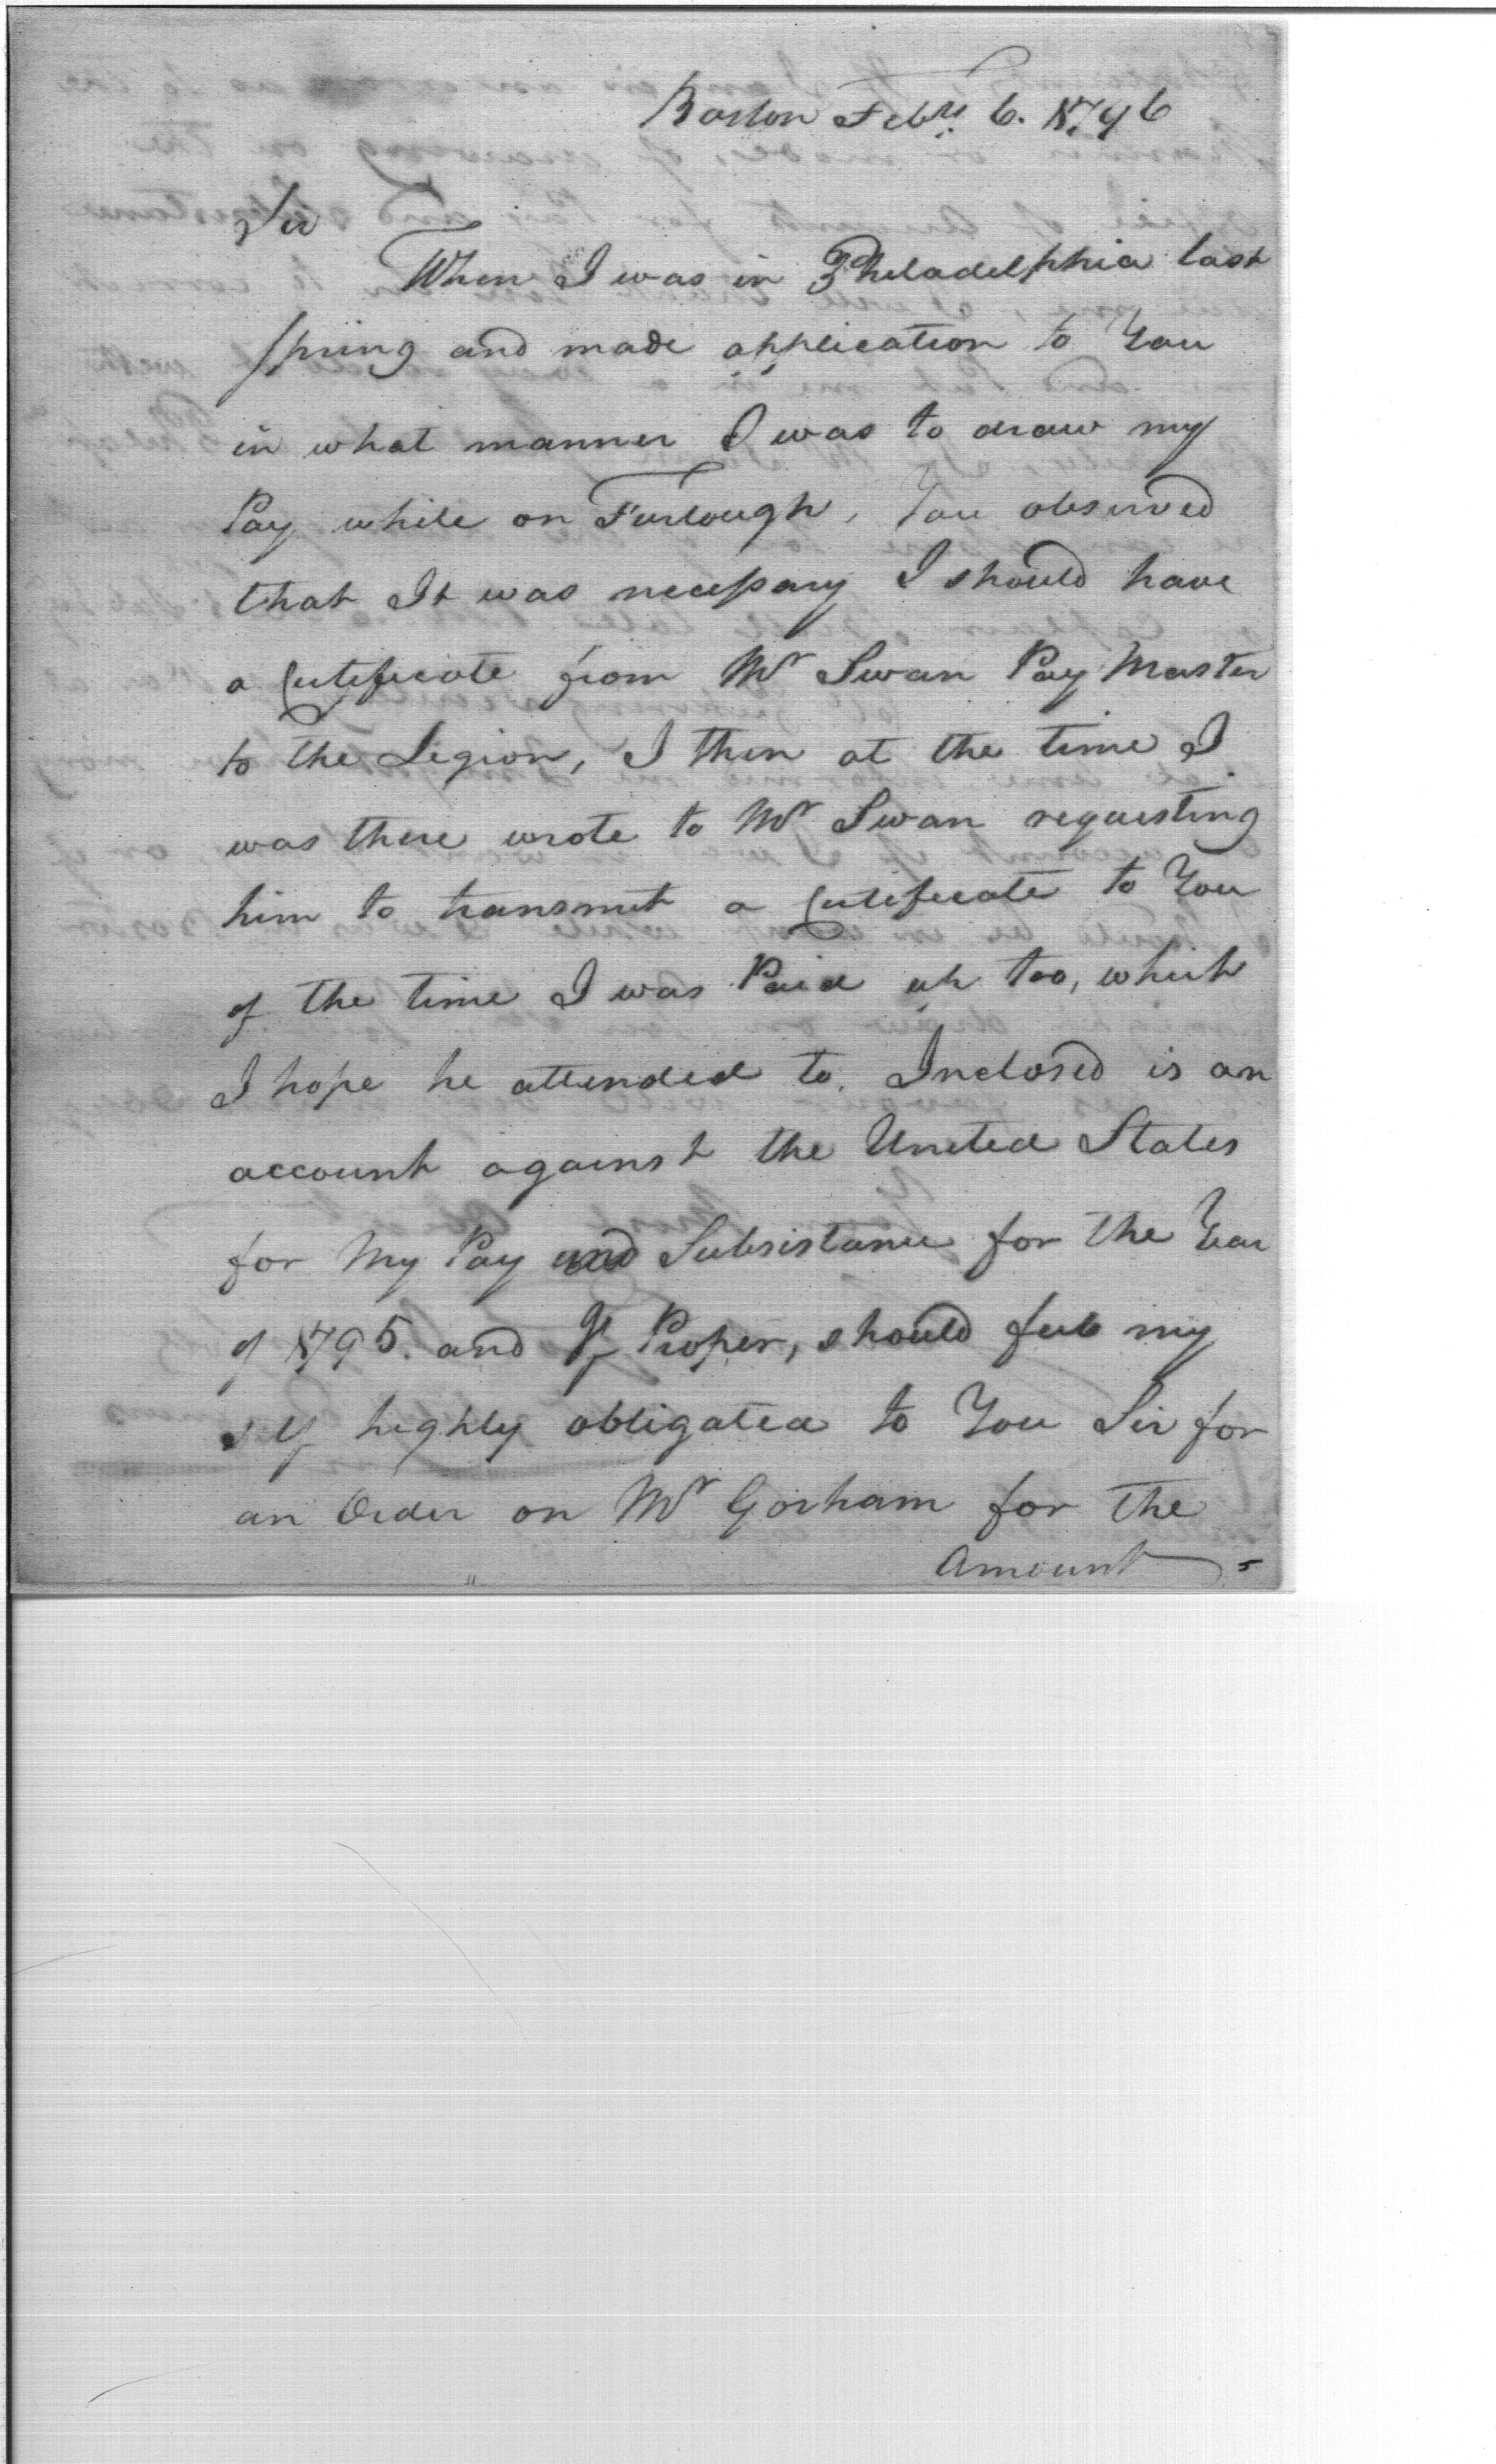 Boston Feby. 6. 1796
Sir
When I was in Philadelphia last
spring and made application to You
in what manner I was to draw my
Pay while on Furlough, You observed
that It was necessary I should have
a Certificate from Mr Swan Pay Master
to the Legion, I then at the time I
was there wrote to Mr Swan requesting
him to transmit a Certificate to You
of the time I was Paid up too, which
I hope he attended to. Inclosed is an
account against the United States
for My Pay and Subsistance for the Year
of 1795. and If Proper, should feel my
self highly obligated to You Sir for
an Order on Mr Gorham for the
Amount